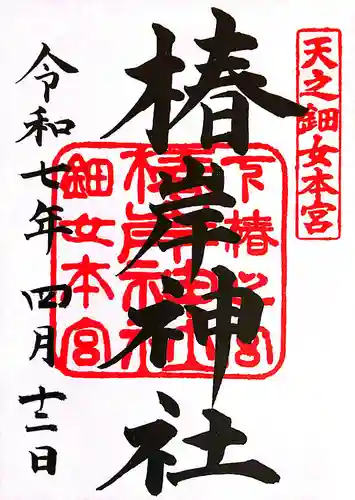 天之鈿女本宮
椿岸神社
下椿之宮
椿岸神社
鈿女本宮
令和七年 四月 十二日